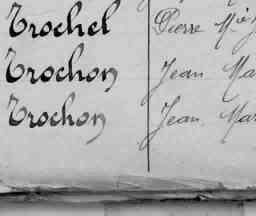 Trochel Pierre M
Trochon Jean Ma
Trochon Jean Mar